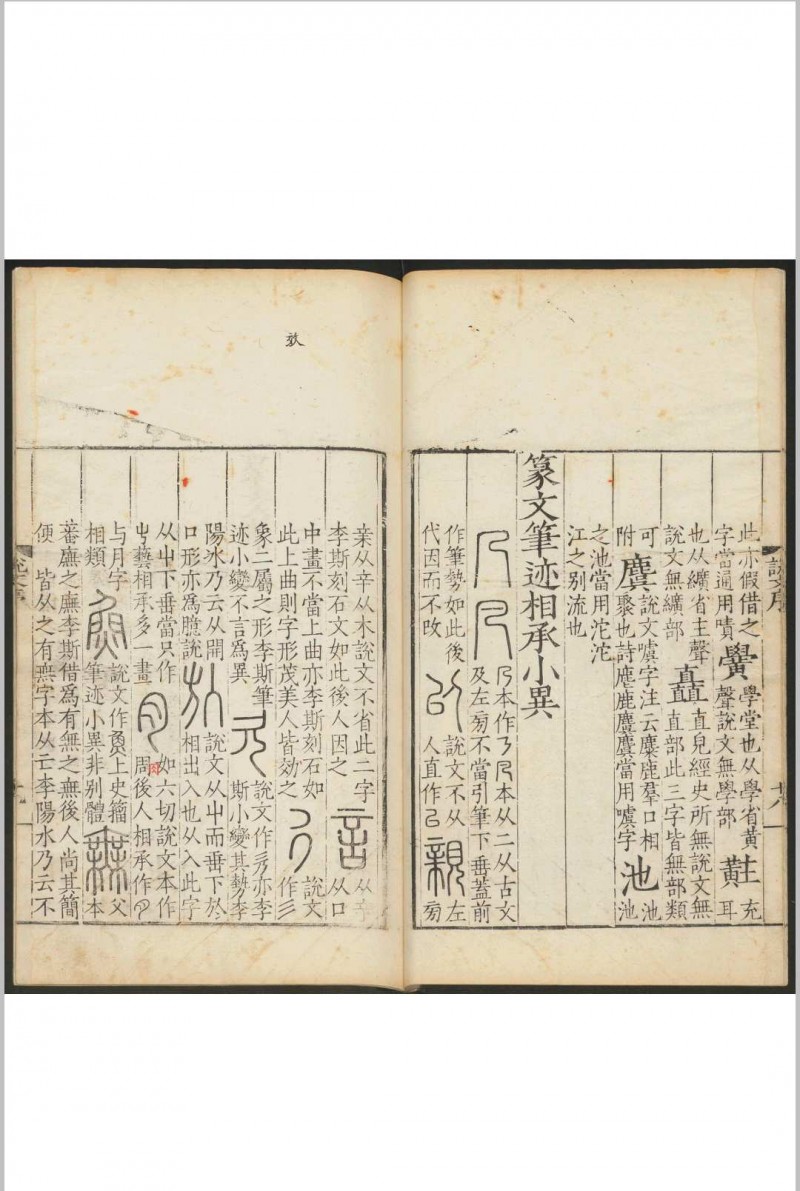 說文序 十八
此亦假借之
字當通用嘖
黌
學堂也从學省黄
聲說文無學部
黈
充
耳
也从纊省主聲
說文無纊部
矗
直皃經史所無說文無
直部此三字皆無部類
可
附
麌
說文噳字注云麋鹿羣口相
聚也詩麀鹿麌麌當用噳字
池
池
池
之池當用沱沱
江之别流也
篆文筆迹相承小異
本作
本从二从古文
及左旁不當引筆下垂蓋前
作筆勢如此後
代因而不改
㠯
說文不从
人直作㠯
親
左
旁
亲从辛从木說文不省此二字
李斯刻石文如此後人因之
言
从辛
从口
中畫不當上曲亦李斯刻石如
此上曲則字形茂美人皆効之
說文
作彡
象二屬之形李斯筆
迹小變不言爲異
說文作
亦李
斯小變其勢李
陽冰乃云从開
口形亦爲臆說
㫃
說文从屮而垂下於
相出入也从入此字
从屮下垂當只作
屮蓺相承多一畫
肉
如六切說文本作
周後人相承作
与月字
相類
魚
說文作
上史籀
筆迹小異非别體
無
父
本
蕃廡之廡李斯借爲有無之無後人尚其簡
便
皆从之有無字本从亡李陽水乃云不
說文序 十九